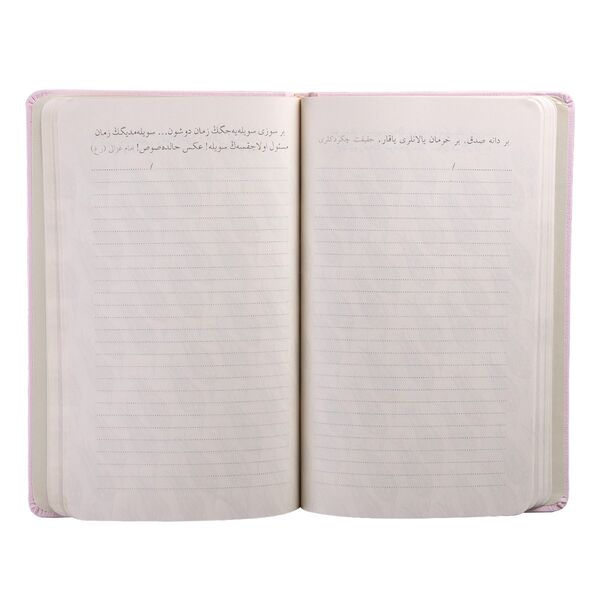 بر دانه صدق، بر خرمان یالانلری یاقار. حقیقت چکردکلری
/
بر سوزی سویله‌یه‌جگڭ زمان دوشون... سویله‌مدیگڭ زمان
مسئول اولاجقسه‌ڭ سویله! عکس حالده صوص! امام غزالی (ر ع)
/